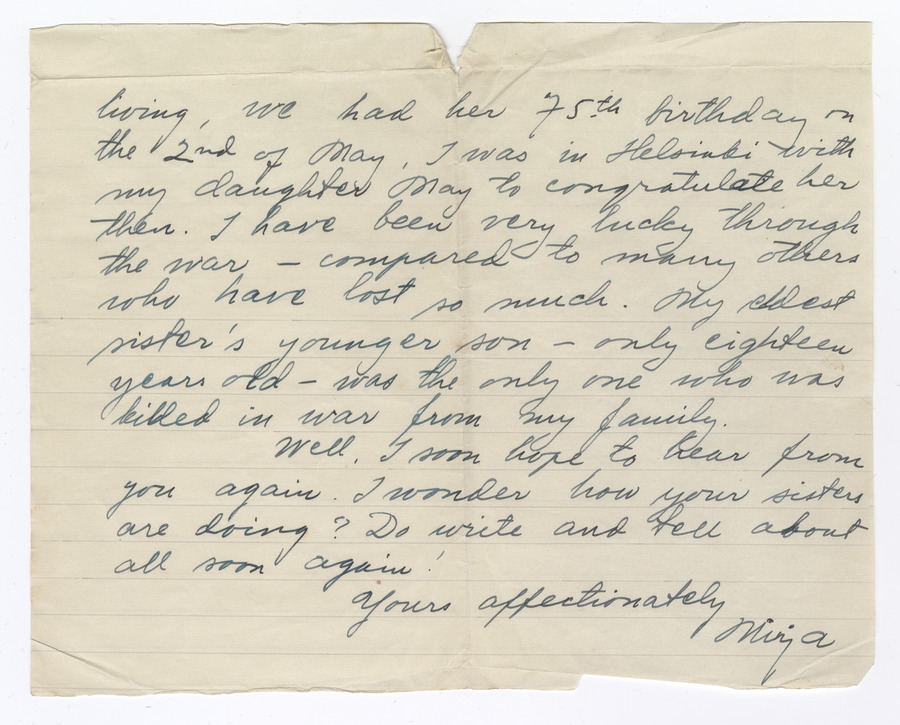 living, we had her 75th birthday on
the 2nd of May, I was in Helsinki with
my daughter May to congratulate her
then. I have been very lucky through
the war – compared to many others
who have lost so much. My eldest
sister's younger son – only eighteen
years old – was the only one who was
killed in war from my family.
Well, I soon hope to hear from
you again. I wonder how your sisters
are doing? Do write and tell about
all soon again!
Yours affectionately
Mirja